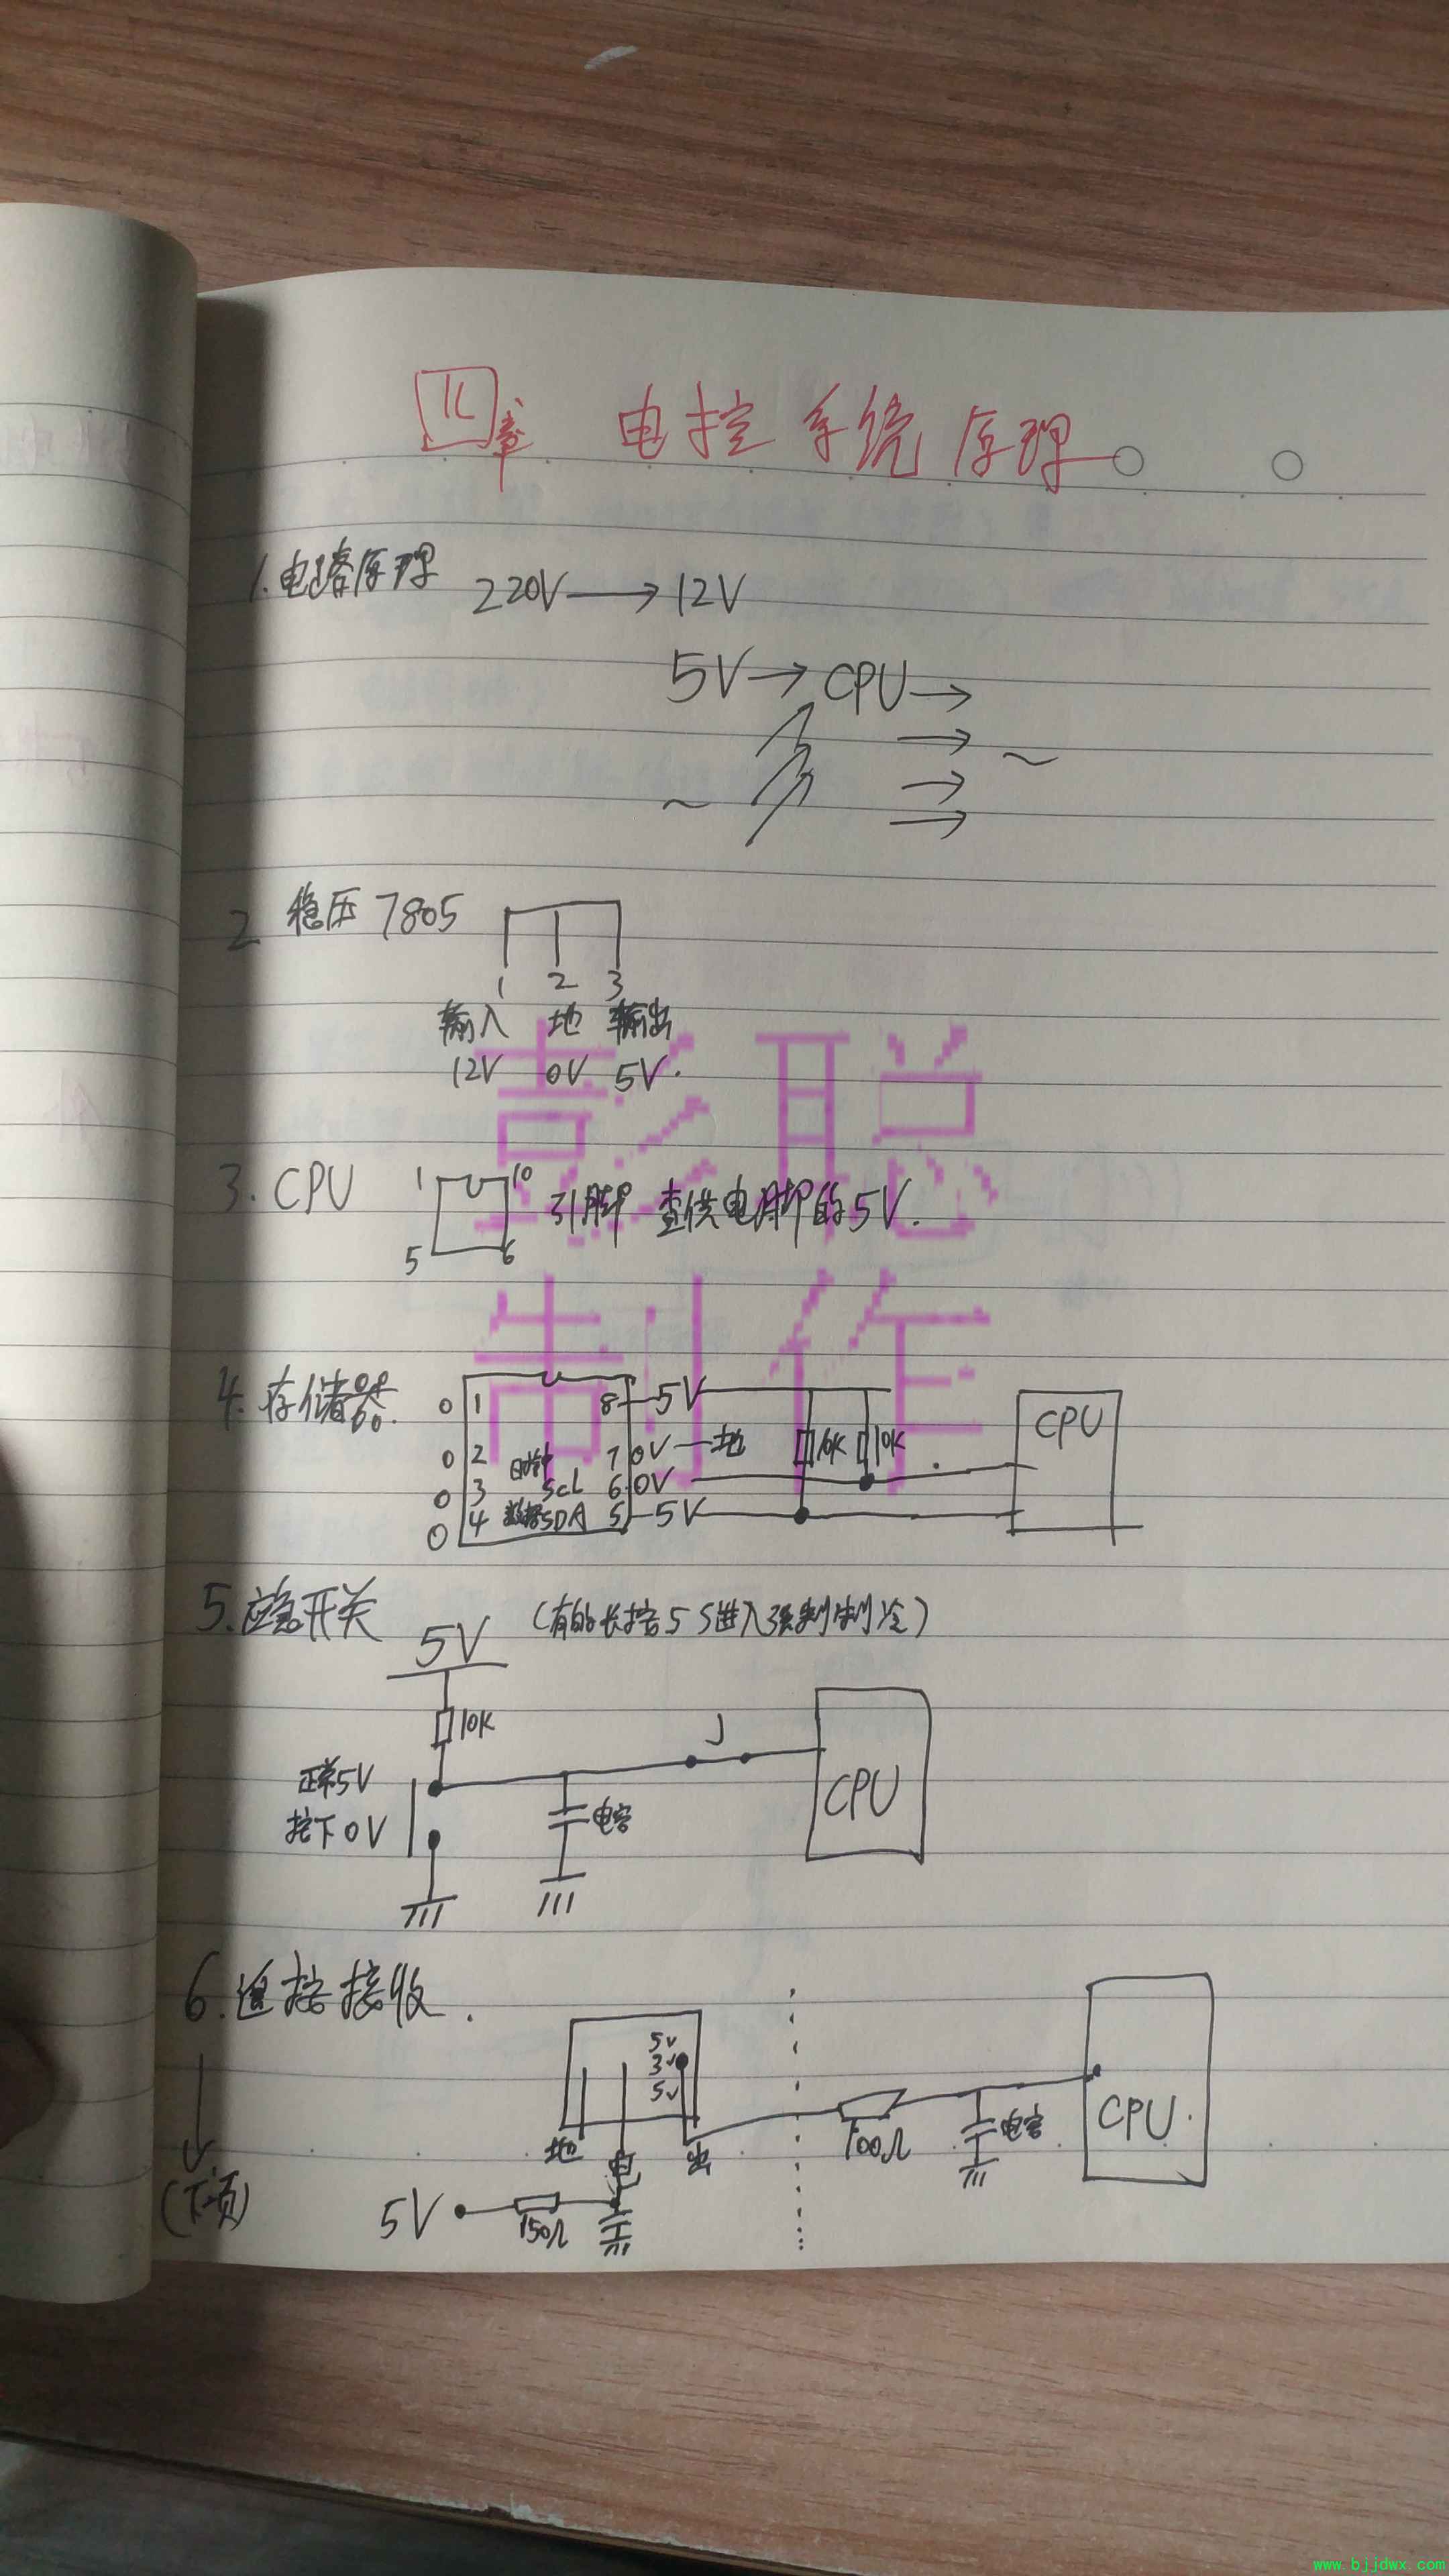 四章 电控系统原理
1.电路原理 220V→12V
5V→CPU→
2 稳压7805
1 2 3
输入 地 输出
12V 0V 5V.
彭聪
制作
3. CPU 1 10 引脚 查供电脚的5V.
5 6
4.存储器. 0 1 8 5V CPU
0 2 时钟 7 0V—地 10K 10K
0 3 SCL 6 0V
0 4 数据SDA 5 5V
5.应急开关 5V (有的长按5S进入强制制冷)
10K J
正常5V
按下0V 电容 CPU
6.遥控接收.
5V
3V
5V
地 电 出 100Ω 电容 CPU.
(下页) 5V 150Ω
www.bjjdwx.com